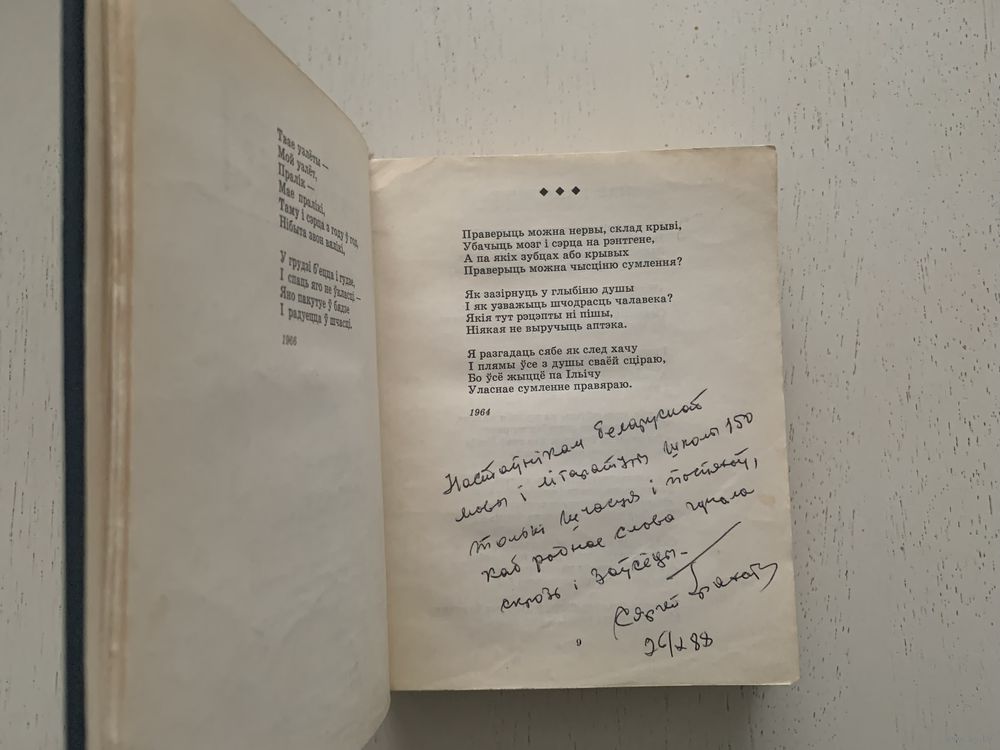 Твае узлёты —
Мой узлёт,
Пралік —
Мае пралікі,
Таму і сэрца з году ў год,
Нібыта звон вялікі,
У грудзі б'ецца і гудзе,
І спаць яго не ўкласці, —
Яно пакутуе ў бядзе
І радуецца ў шчасці.
1966
Праверыць можна нервы, склад крыві,
Убачыць мозг і сэрца на рэнтгене,
А па якіх зубцах або крывых
Праверыць можна чысціню сумлення?
Як зазірнуць у глыбіню душы
І як узважыць шчодрасць чалавека?
Якія тут рэцэпты ні пішы,
Ніякая не выручыць аптэка.
Я разгадаць сябе як след хачу
І плямы ўсе з душы сваёй сціраю,
Бо ўсё жыццё па Ільічу
Уласнае сумленне правяраю.
1964
Настаўнікам беларускай
мовы і літаратуры школы 150
толькі шчасця і поспехаў,
каб роднае слова гучала
скрозь і заўсёды.
Сяргей Грахоўскі
26/X 88
9